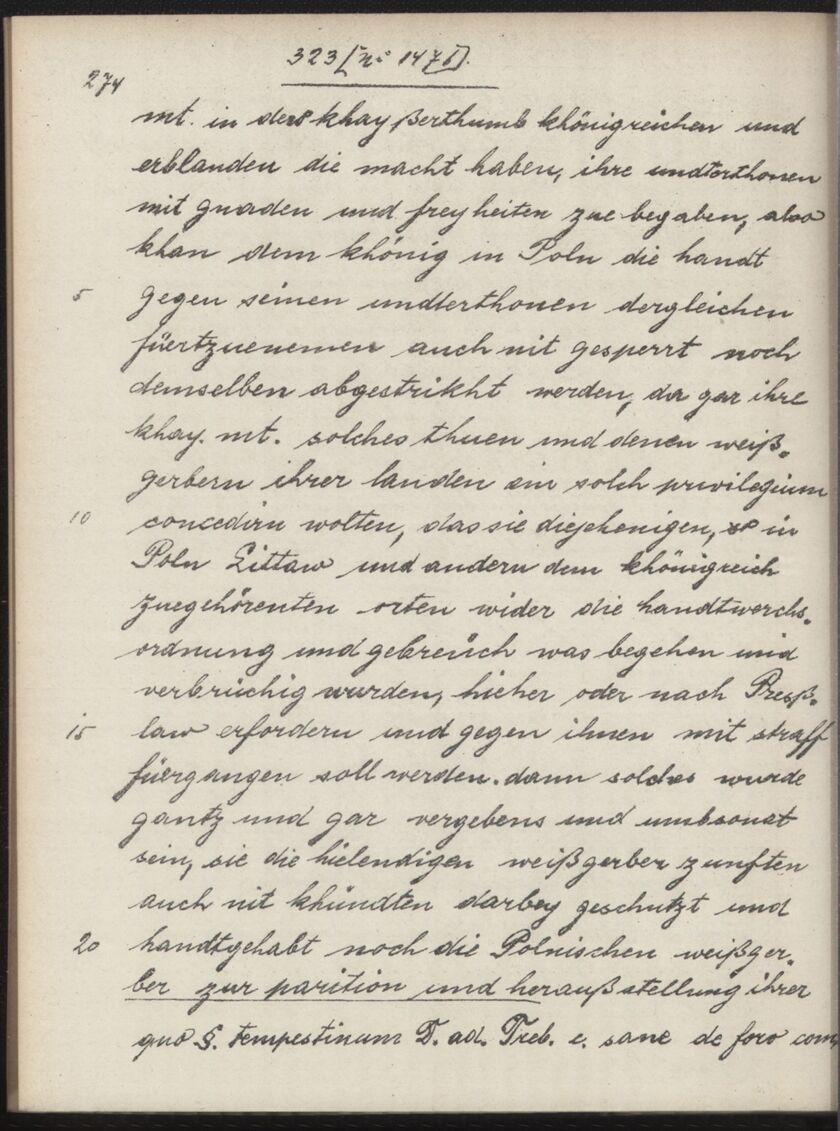 323 [N: 1476].
274
mt. in dero khayßerthumb khönigreichen und
erblanden die macht haben, ihre undterthonen
mit gnaden und freyheiten zue begaben, also
khan dem khönig in Poln die handt
5 gegen seinen undterthonen dergleichen
füertzuenemen auch nit gesperrt noch
demselben abgestrikht werden, da gar ihre
khay. mt. solches thuen und denen weiß-
gerbern ihrer landen ein solch privilegium
10 concedirn wolten, das sie diejehenigen, so in
Poln Littaw und andern dem khönigreich
zuegehörenten orten wider die handtwerchs-
ordnung und gebreüch was begehen und
verbrüchig wurden, hieher oder nach Preß-
15 law erfordern und gegen ihnen mit straff
füergangen soll werden. dann solches wurde
gantz und gar vergebens und umbsonst
sein, sie die hielendigen weißgerber zunften
auch nit khündten darbey geschutzt und
20 handtgehabt noch die Polnischen weißger-
ber zur parition und heraußstellung ihrer
quo §. tempestinum D. ad. Treb. c. sane de foro com